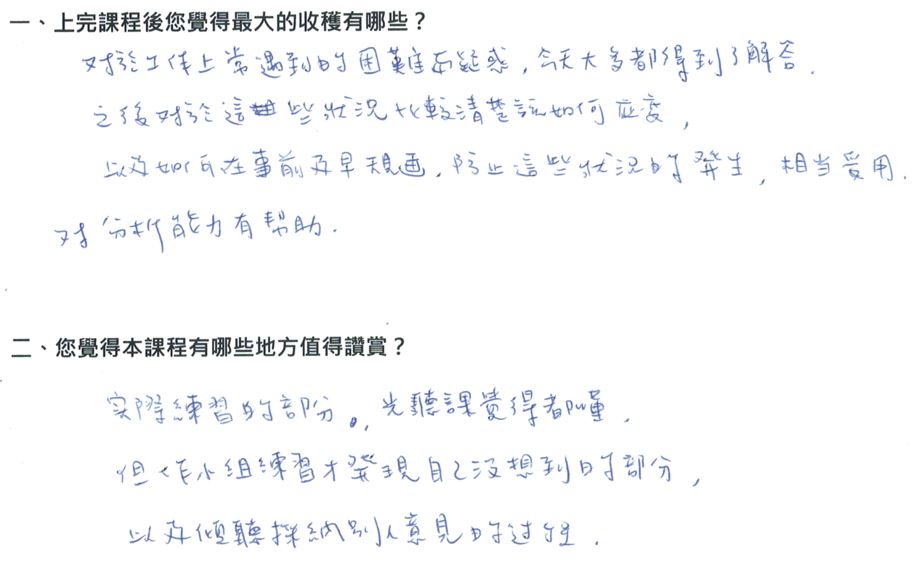 一、上完課程後您覺得最大的收穫有哪些？
对於工作上常遇到的困難和疑惑，今天大多都得到了解答.
之後对於這些狀況比較清楚該如何应变，
以及如何在事前及早規画，防止這些狀況的發生，相当受用.
对分析能力有幫助.
二、您覺得本課程有哪些地方值得讚賞？
实際練習的部分。，光聽課覺得都懂，
但作小組練習才發現自己没想到的部分，
以及傾聽採納別人意見的过程.